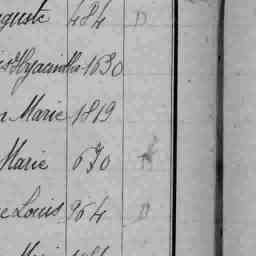 guste 484 D
Hyacinthe 1630
n Marie 1819
Marie 670
e Louis 964 D